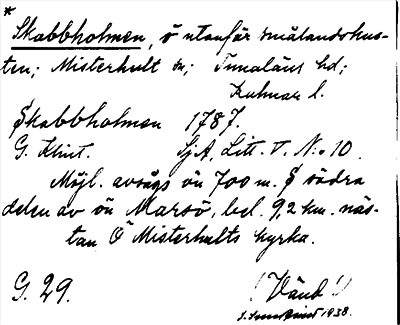 *
Skabbholmen, ö utanför smålandskus-
ten; Misterhult sn; Tunaläns hd;
Kalmar l.
Skabbholmen 1787.
G. Klint. SjA, Litt. V. No 10.
Möjl. avsågs ön 700 m. S södra
delen av ön Marsö, bel. 9,2 km. näs-
tan Ö Misterhults kyrka.
G. 29. (Vänd!)
1938.